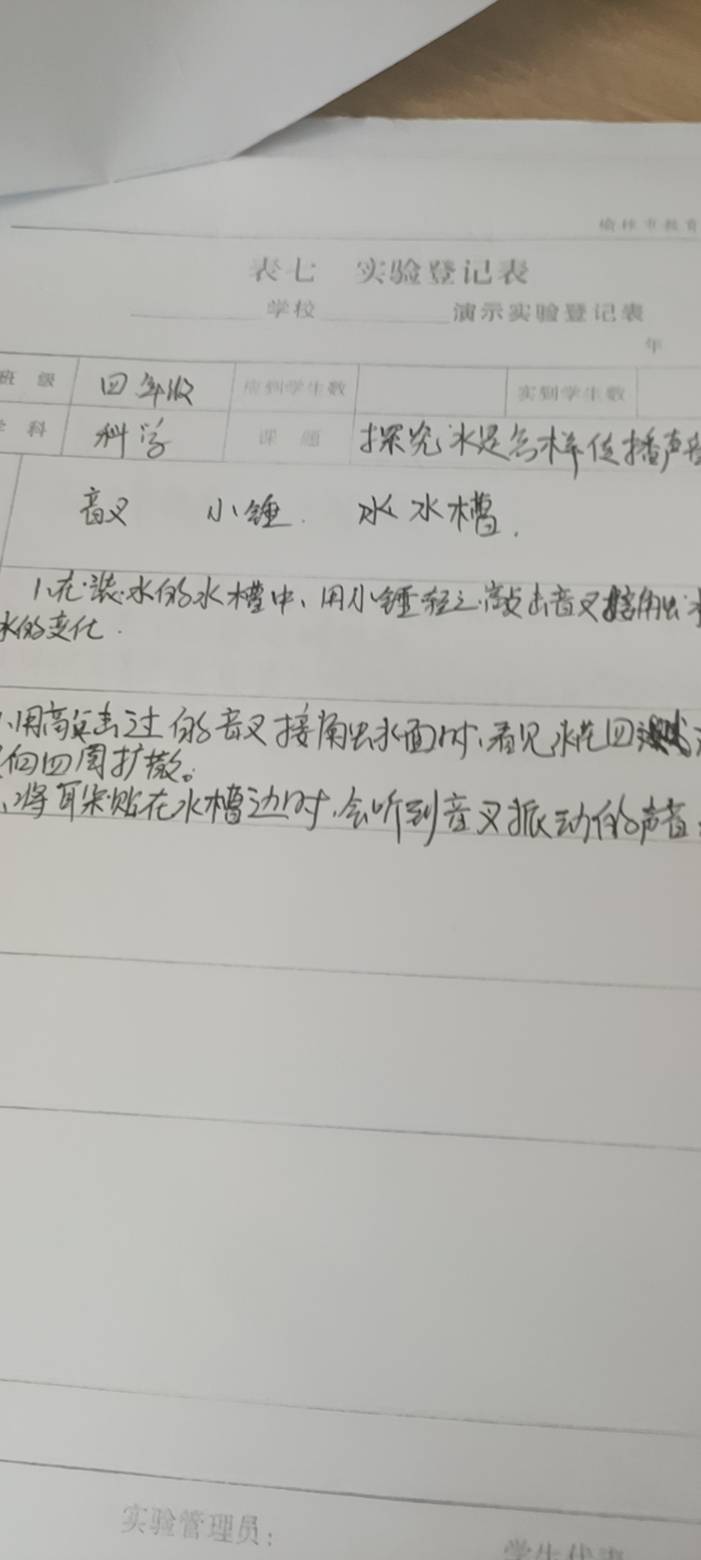 榆林市教育
表七 实验登记表
学校 演示实验登记表
年
班 级 四年级 应到学生数 实到学生数
科 科学 课 题 探究水是怎样传播声音
音叉 小锤. 水 水槽.
1、在装水的水槽中、用小锤轻轻敲击音叉接触
水的变化.
、用敲击过的音叉接触水面时、看见水花四
向四周扩散。
、将耳朵贴在水槽边时、会听到音叉振动的声音
实验管理员:
学生代表